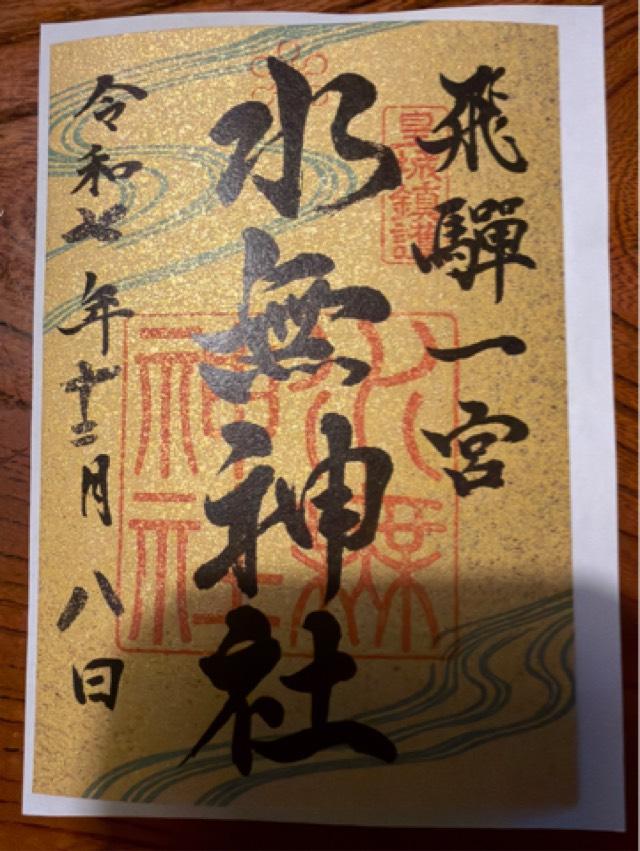 飛騨一宮
皇城鎮護
水無神社
水無神社
令和七年十二月八日